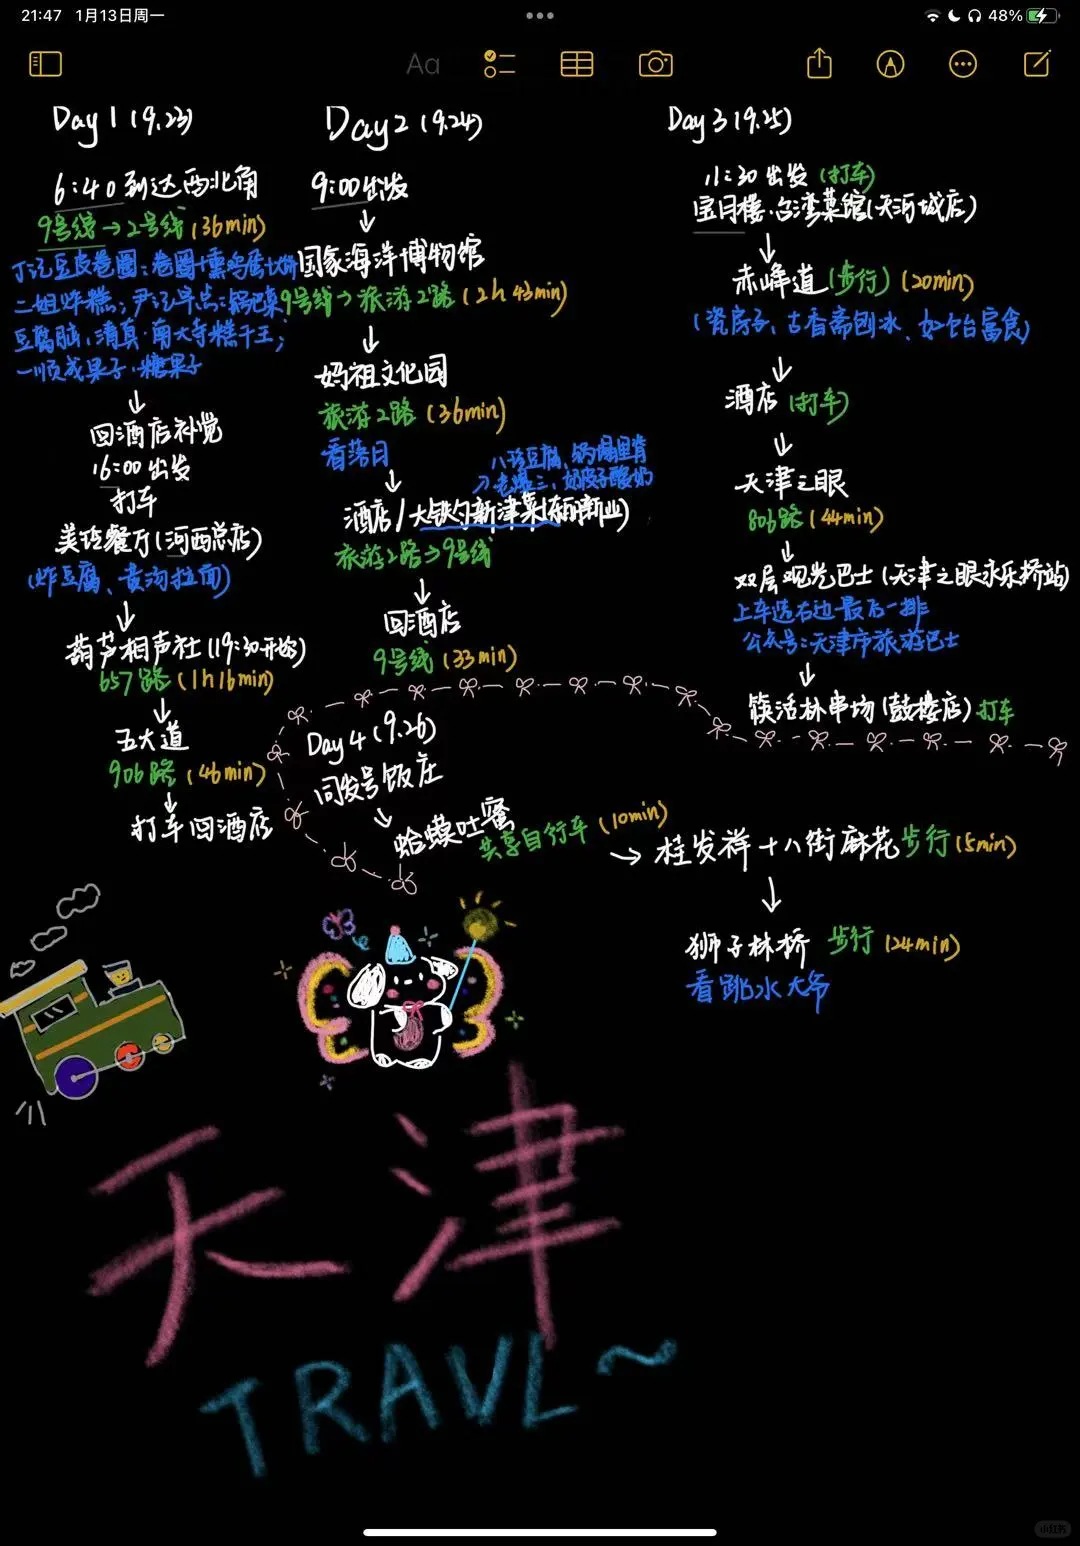 21:47 1月13日周一
48%
Aa
Day 1 (9.23)
6:40 到达西北角
9号线→2号线 (36min)
丁记豆皮卷圈:卷圈+熏鸡蛋+大饼
二姐炸糕;尹记早点:锅巴菜
豆腐脑,清真·南大寺糕干王;
一顺成果子·糖果子
↓
回酒店补觉
16:00出发
打车
美铃餐厅(河西总店)
(炸豆腐、黄汤拉面)
↓
葫芦相声社(19:30开始)
657路(1h16min)
↓
五大道
906路(46min)
↓
打车回酒店
Day2 (9.24)
9:00出发
↓
国家海洋博物馆
9号线→旅游2路(2h43min)
↓
妈祖文化园
旅游2路(36min)
看落日
↓
八珍豆腐、锅塌里脊
老爆三、奶皮子酸奶
酒店/大铁勺新津菜
旅游2路→9号线
↓
回酒店
9号线(33min)
Day 3 (9.25)
11:30出发(打车)
宝月楼·台湾菜馆(天河城店)
↓
赤峰道(步行)(20min)
(瓷房子、古香斋刨冰、如饴富食)
↓
酒店(打车)
↓
天津之眼
806路(44min)
↓
双层观光巴士(天津之眼永乐桥站)
上车选右边最后一排
公众号:天津市旅游巴士
↓
筷活林串场(鼓楼店)打车
Day 4 (9.26)
同发号饭庄
↓
蛤蟆吐蜜
共享自行车(10min)
→ 桂发祥十八街麻花 步行(5min)
↓
狮子林桥 步行(24min)
看跳水大爷
天津
TRAVL~
小红书